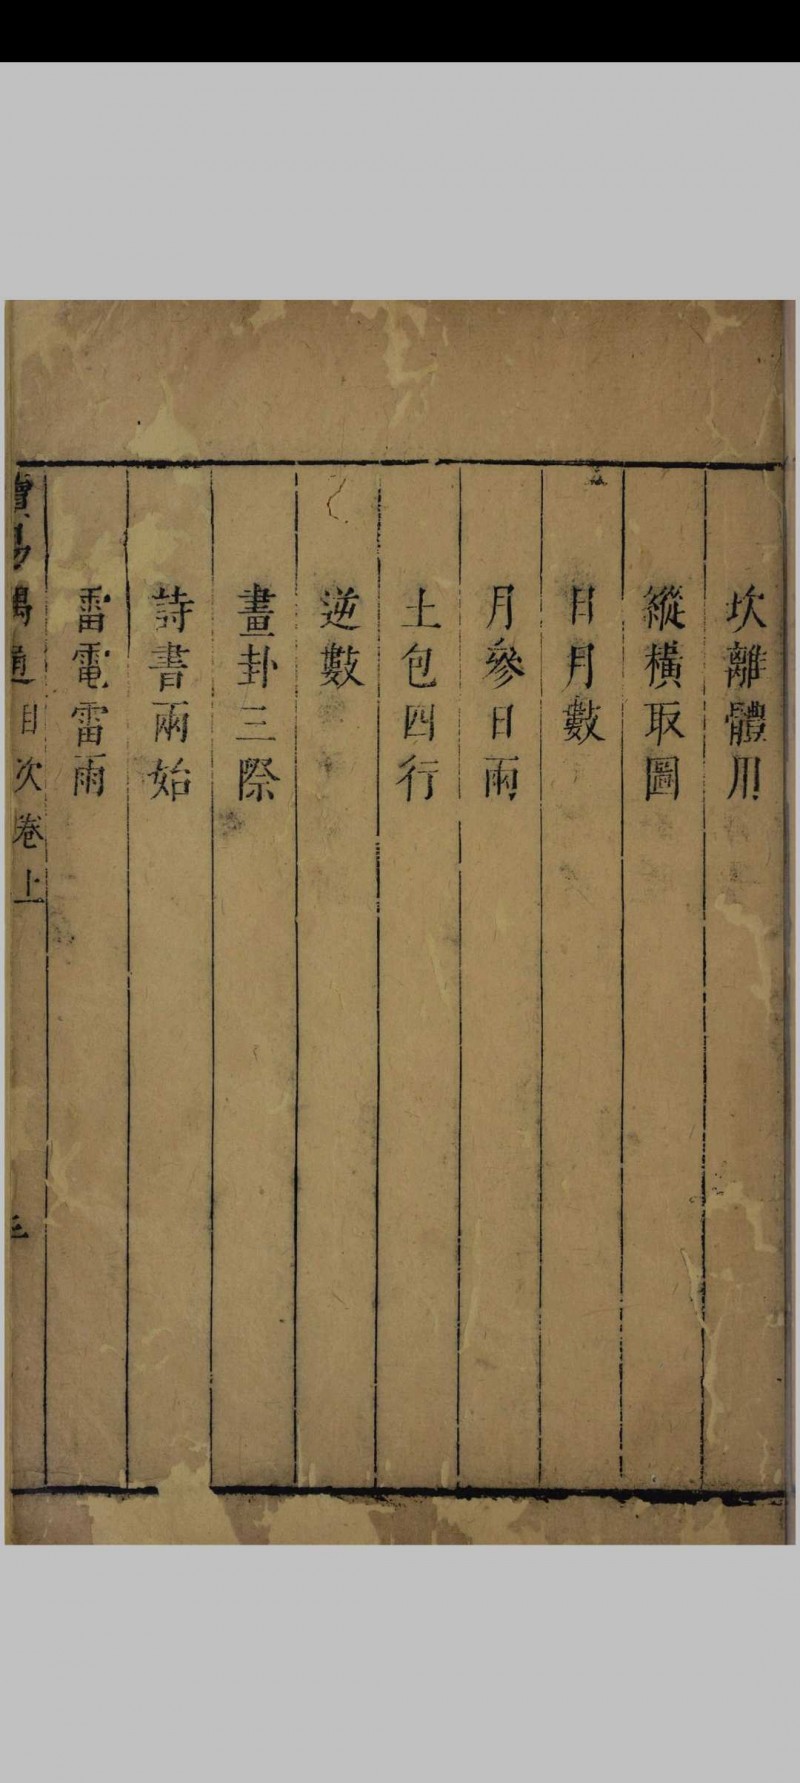 坎離體用
縱橫取圖
日月數
月參日兩
土包四行
逆數
畫卦三際
詩書兩始
雷電雷雨
讀易隅通目次卷上
三